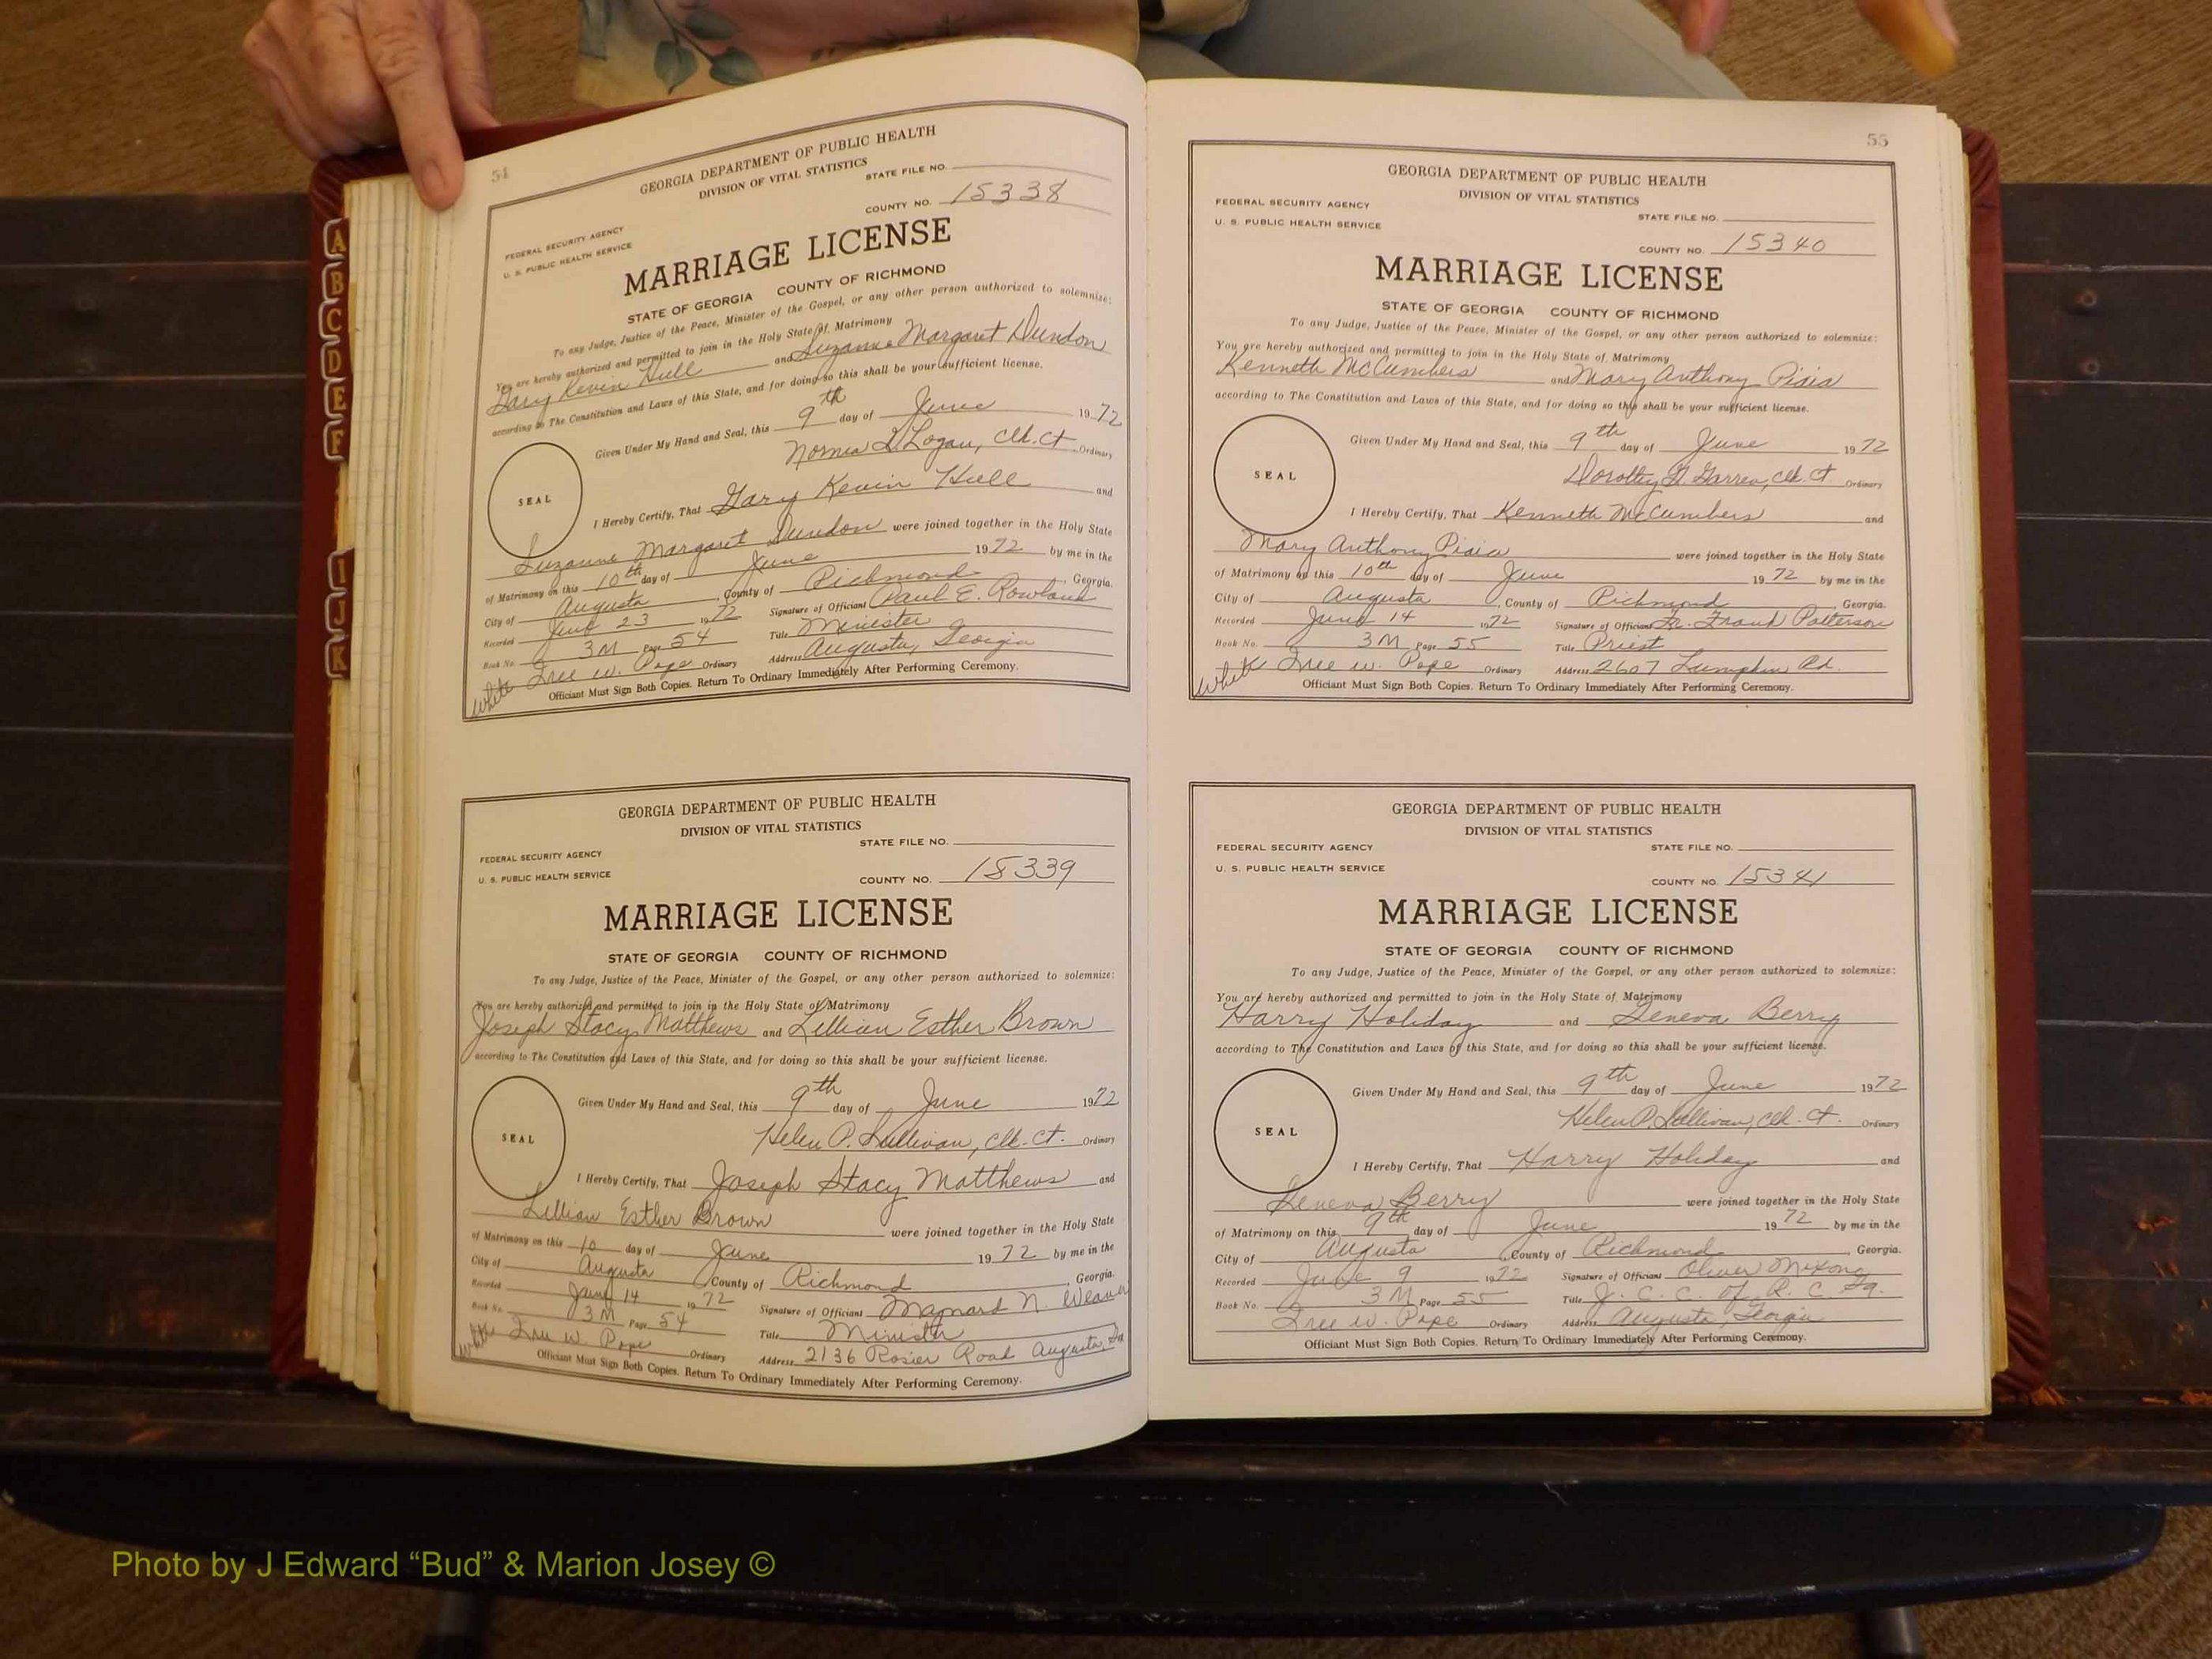 A
B
C
D
E
F
I
J
K
54
GEORGIA DEPARTMENT OF PUBLIC HEALTH
DIVISION OF VITAL STATISTICS
STATE FILE NO.
FEDERAL SECURITY AGENCY
U. S. PUBLIC HEALTH SERVICE
COUNTY NO. 15338
MARRIAGE LICENSE
STATE OF GEORGIA COUNTY OF RICHMOND
To any Judge, Justice of the Peace, Minister of the Gospel, or any other person authorized to solemnize:
You are hereby authorized and permitted to join in the Holy State of Matrimony
Gary Kevin Hull and Suzanne Margaret Dundon
according to The Constitution and Laws of this State, and for doing so this shall be your sufficient license.
Given Under My Hand and Seal, this 9th day of June 1972
Norma L. Logan, Clk. Ct. Ordinary
SEAL
I Hereby Certify, That Gary Kevin Hull and
Suzanne Margaret Dundon were joined together in the Holy State
of Matrimony on this 10th day of June 1972 by me in the
City of Augusta, County of Richmond, Georgia.
Recorded June 23 1972 Signature of Officiant Paul E. Rowland
Book No. 3M Page 54 Title Minister
White W. Pope Ordinary Address Augusta, Georgia
Officiant Must Sign Both Copies. Return To Ordinary Immediately After Performing Ceremony.
GEORGIA DEPARTMENT OF PUBLIC HEALTH
DIVISION OF VITAL STATISTICS
STATE FILE NO.
FEDERAL SECURITY AGENCY
U. S. PUBLIC HEALTH SERVICE
COUNTY NO. 15339
MARRIAGE LICENSE
STATE OF GEORGIA COUNTY OF RICHMOND
To any Judge, Justice of the Peace, Minister of the Gospel, or any other person authorized to solemnize:
You are hereby authorized and permitted to join in the Holy State of Matrimony
Joseph Stacy Matthews and Lillian Esther Brown
according to The Constitution and Laws of this State, and for doing so this shall be your sufficient license.
Given Under My Hand and Seal, this 9th day of June 1972
Helen P. Sullivan, Clk. Ct. Ordinary
SEAL
I Hereby Certify, That Joseph Stacy Matthews and
Lillian Esther Brown were joined together in the Holy State
of Matrimony on this 10 day of June 1972 by me in the
City of Augusta County of Richmond, Georgia.
Recorded June 14 1972 Signature of Officiant Maynard N. Weaver
Book No. 3M Page 54 Title Minister
White W. Pope Ordinary Address 2136 Rosier Road Augusta, Ga
Officiant Must Sign Both Copies. Return To Ordinary Immediately After Performing Ceremony.
55
GEORGIA DEPARTMENT OF PUBLIC HEALTH
DIVISION OF VITAL STATISTICS
FEDERAL SECURITY AGENCY
U. S. PUBLIC HEALTH SERVICE
STATE FILE NO.
COUNTY NO. 15340
MARRIAGE LICENSE
STATE OF GEORGIA COUNTY OF RICHMOND
To any Judge, Justice of the Peace, Minister of the Gospel, or any other person authorized to solemnize:
You are hereby authorized and permitted to join in the Holy State of Matrimony
Kenneth McCumbers and Mary Anthony Piaia
according to The Constitution and Laws of this State, and for doing so this shall be your sufficient license.
Given Under My Hand and Seal, this 9th day of June 1972
Dorothy Clk. Ct. Ordinary
SEAL
I Hereby Certify, That Kenneth McCumbers and
Mary Anthony Piaia were joined together in the Holy State
of Matrimony on this 10th day of June 1972 by me in the
City of Augusta, County of Richmond, Georgia.
Recorded June 14 1972 Signature of Officiant Fr. Frank Patterson
Book No. 3M Page 55 Title Priest
White W. Pope Ordinary Address 2607 Lumpkin Rd.
Officiant Must Sign Both Copies. Return To Ordinary Immediately After Performing Ceremony.
GEORGIA DEPARTMENT OF PUBLIC HEALTH
DIVISION OF VITAL STATISTICS
FEDERAL SECURITY AGENCY
STATE FILE NO.
U. S. PUBLIC HEALTH SERVICE
COUNTY NO. 15341
MARRIAGE LICENSE
STATE OF GEORGIA COUNTY OF RICHMOND
To any Judge, Justice of the Peace, Minister of the Gospel, or any other person authorized to solemnize:
You are hereby authorized and permitted to join in the Holy State of Matrimony
Harry Holiday and Geneva Berry
according to The Constitution and Laws of this State, and for doing so this shall be your sufficient license.
Given Under My Hand and Seal, this 9th day of June 1972
Helen P. Sullivan, Clk. Ct. Ordinary
SEAL
I Hereby Certify, That Harry Holiday and
Geneva Berry were joined together in the Holy State
of Matrimony on this 9th day of June 1972 by me in the
City of Augusta, County of Richmond, Georgia.
Recorded June 9 1972 Signature of Officiant Oliver Mixon
Book No. 3M Page 55 Title J. C. C. of R. C. Ga.
W. Pope Ordinary Address Augusta, Georgia
Officiant Must Sign Both Copies. Return To Ordinary Immediately After Performing Ceremony.
Photo by J Edward “Bud” & Marion Josey ©